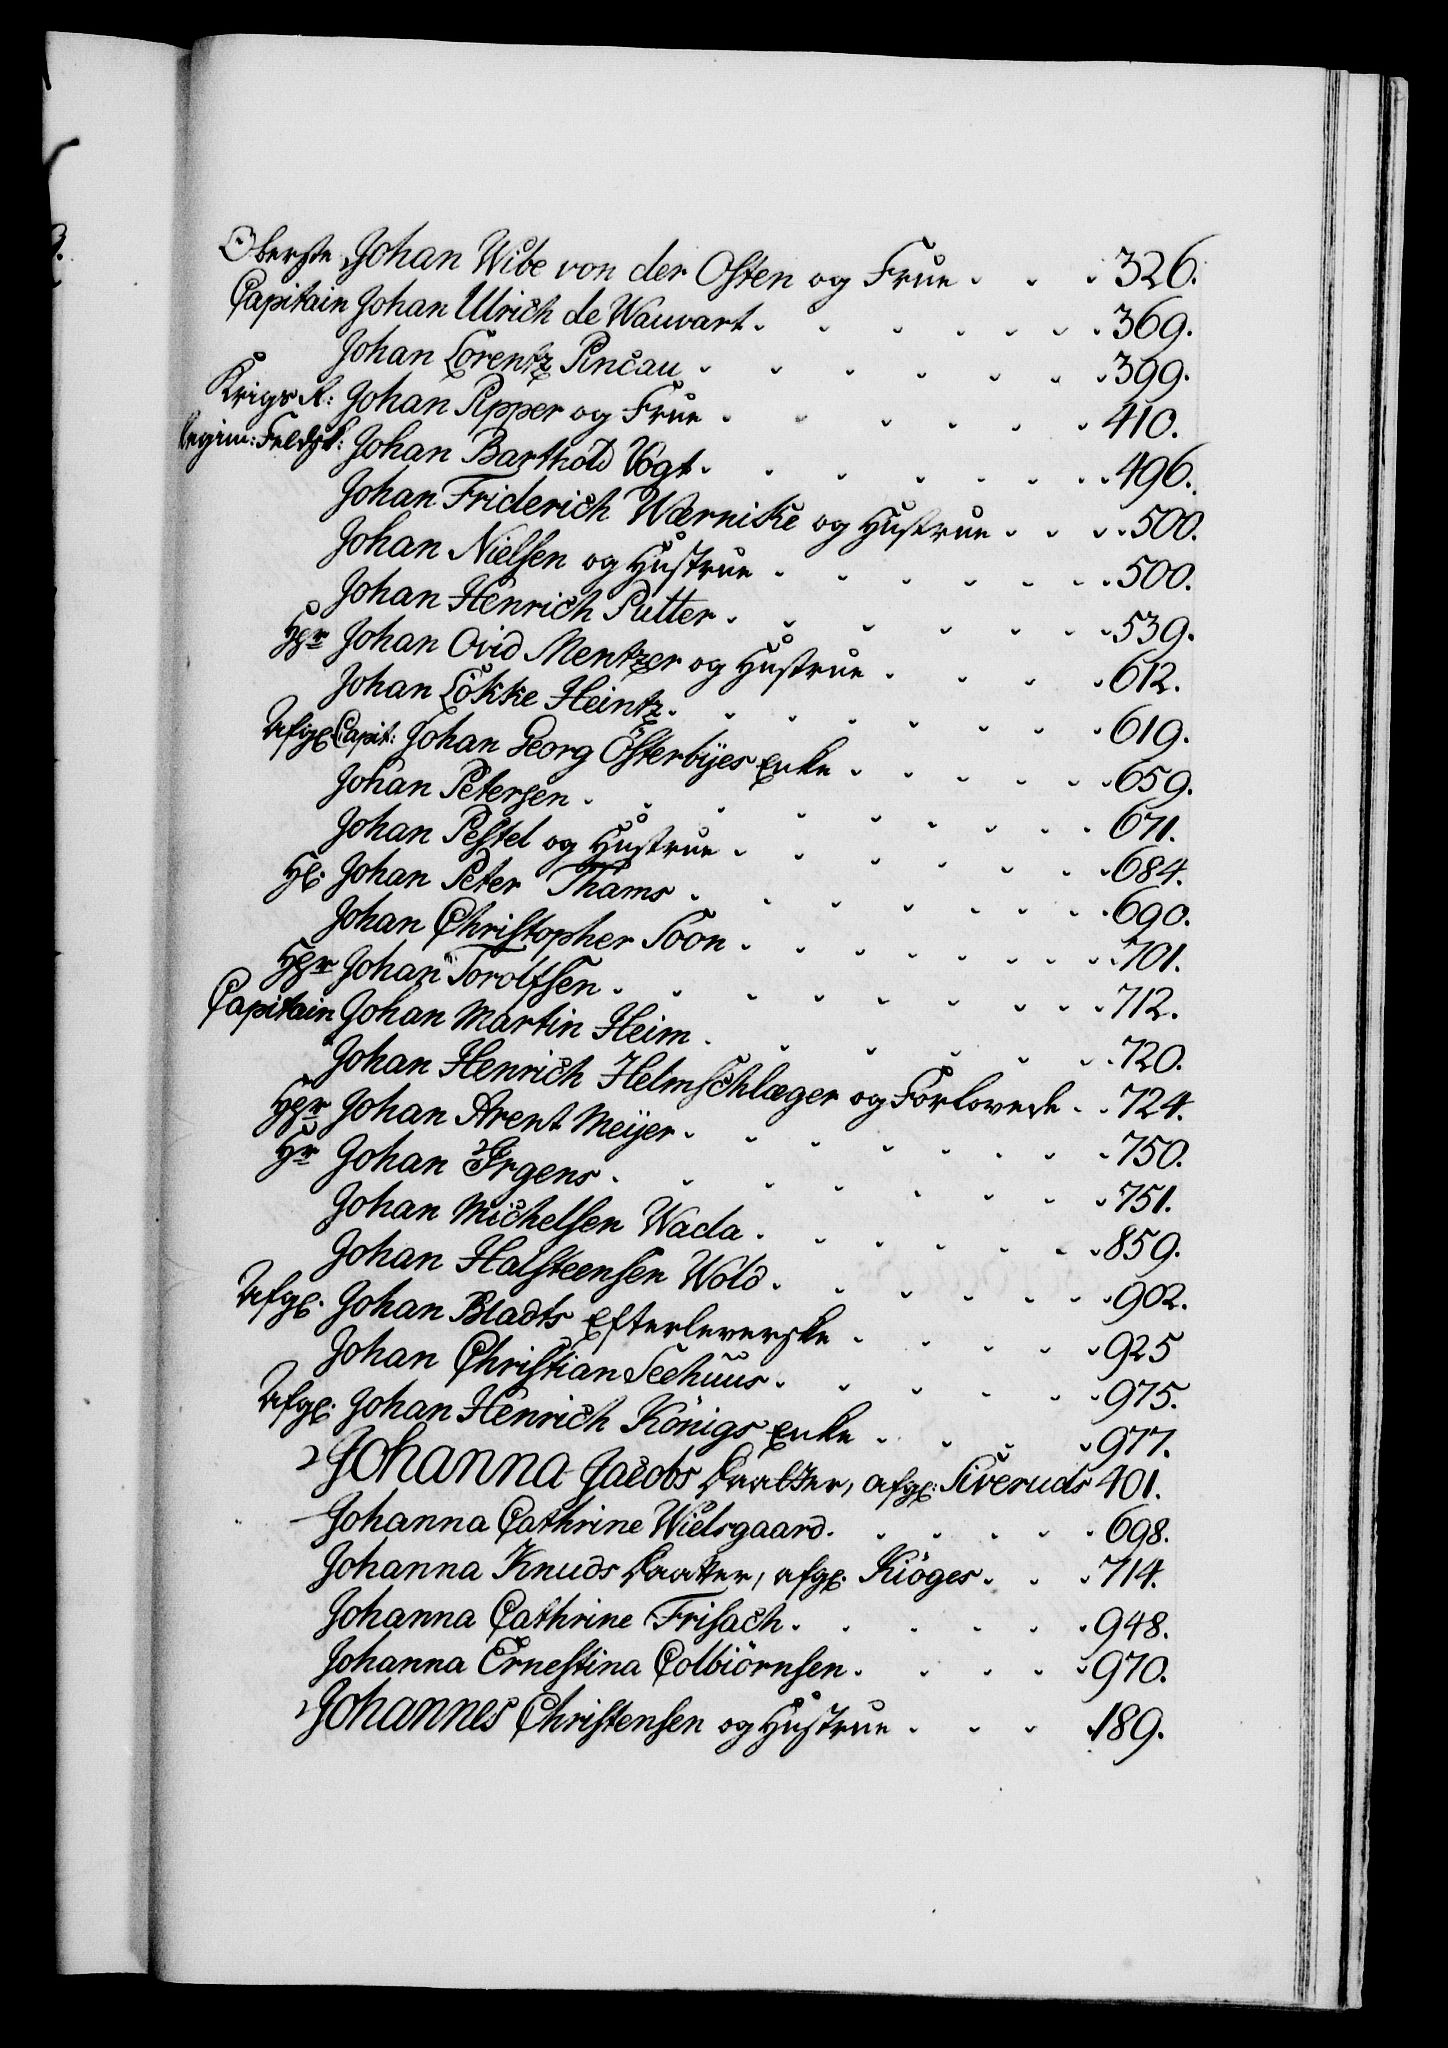 Oberste Johan Wibe von der Osten og Frue . . . 326.
Capitain Johan Ulrich de Wauvart . . . . . . . 369.
Johan Lorentz Pincau . . . . . . . 399.
Krigs R: Johan Pipper og Frue . . . . . . 410.
Regim: Feldsk: Johan Barthold Vogt . . . . . . . 496.
Johan Friderich Wærnike og Hustrue . . . . 500.
Johan Nielsen og Hustrue . . . . . . . 500.
Johan Henrich Putter . . . . . . . 539.
Hr Johan Ovid Mentzer og Hustrue . . . . 612.
Johan Løkke Heintz . . . . . . . . 619.
Afg: Capit: Johan Georg Österbyes Enke . . . . . . 659.
Johan Petersen . . . . . . . . . 671.
Johan Pestel og Hustrue . . . . . . . 684.
Hr. Johan Peter Thams . . . . . . . 690.
Johan Christopher Soon . . . . . . . . 701.
Hr Johan Torolfsen . . . . . . . . . 712.
Capitain Johan Martin Heim . . . . . . . 720.
Johan Henrich Helmschlæger og Forlovede . . 724.
Hr Johan Arent Meijer . . . . . . . . 750.
Hr Johan Irgens . . . . . . . . 751.
Johan Michelsen Wada . . . . . . . 859.
Johan Halsteensen Wold . . . . . . . 902.
Afg: Johan Bladts Efterleverske . . . . . 925
Johan Christian Seehuus . . . . . . 975.
Afg: Johan Henrich Königs Enke . . . . 977.
Johanna Jacobs Daatter, afg: Siveruds 401.
Johanna Cathrine Wielsgaard . . . . . . 698.
Johanna Knuds Daatter, afg: Kiöges . . . 714.
Johanna Cathrine Frisach . . . . . . 948.
Johanna Ernestina Colbiörnsen . . . . . 970.
Johannes Christensen og Hustrue . . . . 189.